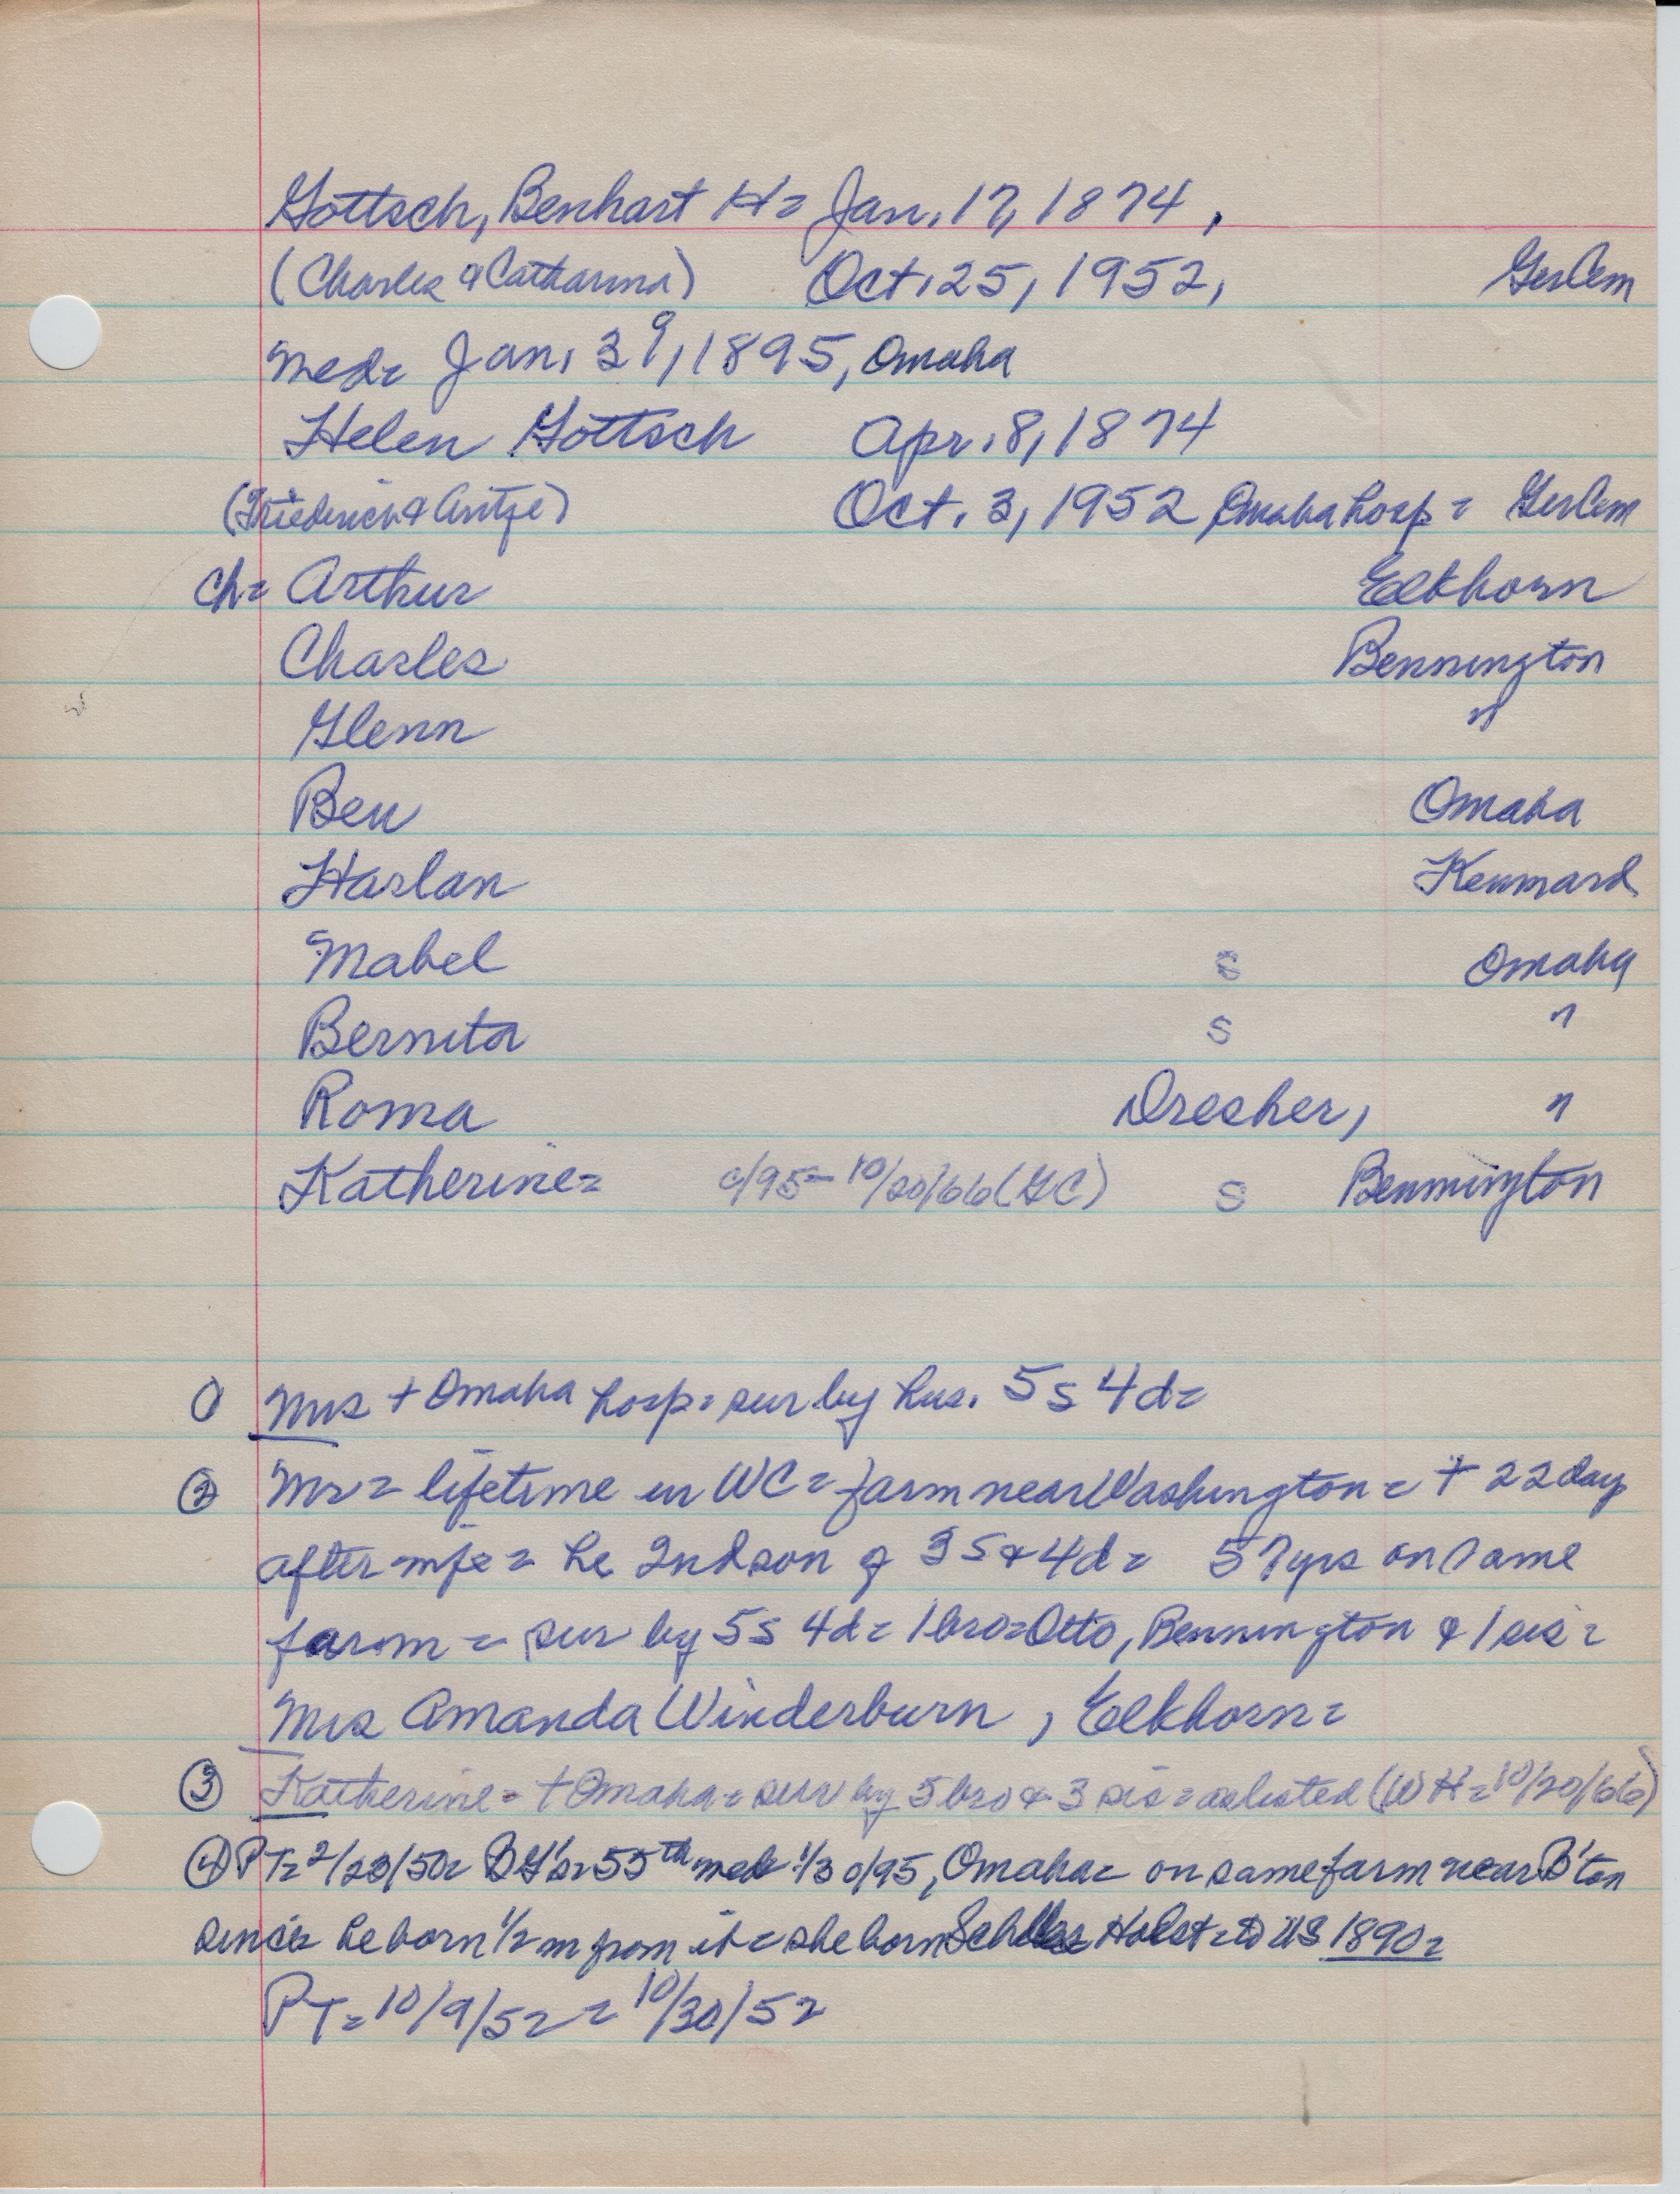 Gottsch, Benhart H= Jan. 17, 1874,
(Charles & Catharina) Oct. 25, 1952, GerCem
med= Jan. 39, 1895, Omaha
Helen Gottsch Apr. 8, 1874
(Friederich & Antje) Oct. 3, 1952 Omaha hosp = GerCem
ch= Arthur Elkhorn
Charles Bennington
Glenn "
Ben Omaha
Harlan Kennard
Mabel S Omaha
Bernita S "
Roma Dresher, "
Katherine= c/95= 10/20/66 (GC) S Bennington
① Mrs + Omaha hosp= sur by hus. 5s 4d=
② Mr= lifetime in WC= farm near Washington= + 22 day
after wife= he 2nd son of 3s & 4d= 57 yrs on same
farm= sur by 5s 4d= 1 bro=Otto, Bennington & 1 sis=
Mrs Amanda Winderburn, Elkhorn=
③ Katherine= + Omaha= sur by 5 bro & 3 sis= (WH= 10/20/66)
④ PT= 2/23/50= BG's= 55th med 1/30/95, Omaha= on same farm near B'ton
since= he born 1/2 m from it= she born Holst= to US 1890=
PT= 10/9/52 = 10/30/52